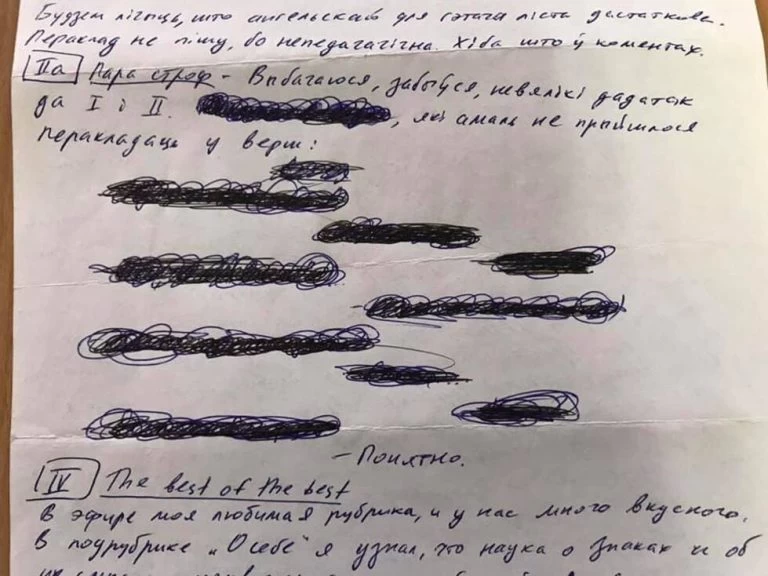 Будзем лічыць, што ангельскай для гэтага ліста дастаткова.
Пераклад не пішу, бо непедагагічна. Хіба што ў каментах.
IIa Пара строф - Выбачаюся, забыўся, невялікі дадатак
да I і II. , які амаль не прыйшлося
перакладаць у верш:
- Понятно.
IV The best of the best
В эфире моя любимая рубрика, и у нас много вкусного.
В подрубрике „О себе" я узнал, что наука о знаках и об